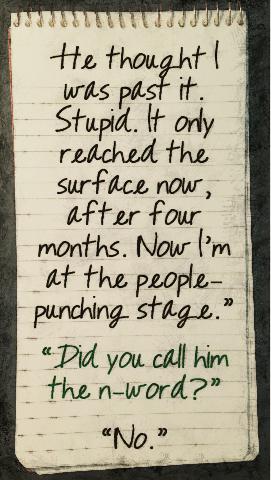 He thought I
was past it.
Stupid. It only
reached the
surface now,
after four
months. Now I'm
at the people-
punching stage."
"Did you call him
the n-word?"
"No."